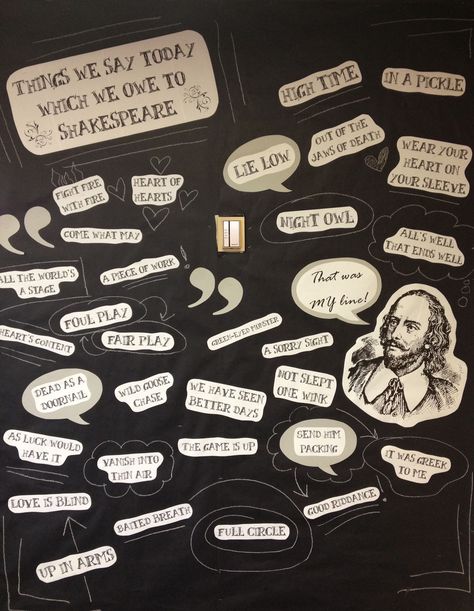 THINGS WE SAY TODAY
WHICH WE OWE TO
SHAKESPEARE
HIGH TIME
IN A PICKLE
LIE LOW
OUT OF THE
JAWS OF DEATH
WEAR YOUR
HEART ON
YOUR SLEEVE
FIGHT FIRE
WITH FIRE
HEART OF
HEARTS
NIGHT OWL
COME WHAT MAY
ALL'S WELL
THAT ENDS WELL
ALL THE WORLD'S
A STAGE
A PIECE OF WORK
That was
MY line!
FOUL PLAY
FAIR PLAY
HEART'S CONTENT
GREEN-EYED MONSTER
A SORRY SIGHT
DEAD AS A
DOORNAIL
WILD GOOSE
CHASE
WE HAVE SEEN
BETTER DAYS
NOT SLEPT
ONE WINK
AS LUCK WOULD
HAVE IT
VANISH INTO
THIN AIR
THE GAME IS UP
SEND HIM
PACKING
IT WAS GREEK
TO ME
LOVE IS BLIND
BAITED BREATH
FULL CIRCLE
GOOD RIDDANCE
UP IN ARMS